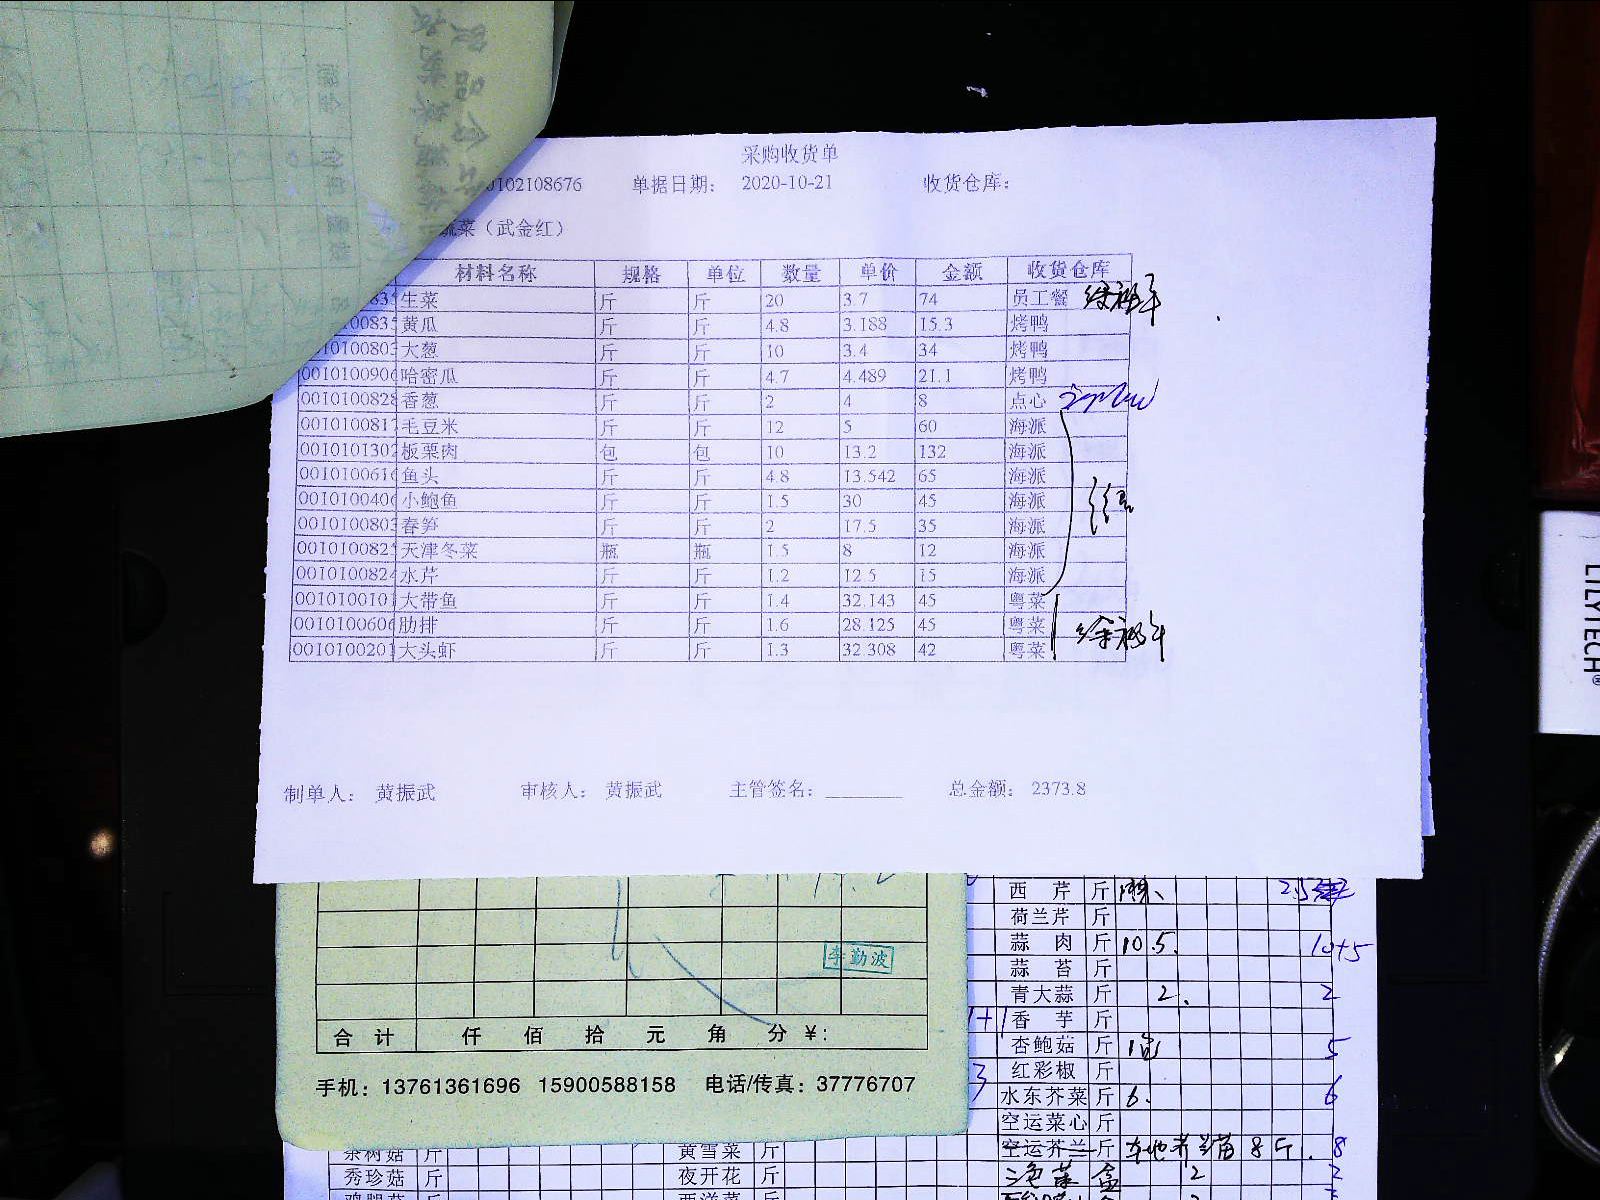 采购收货单
0102108676 单据日期： 2020-10-21 收货仓库：
蔬菜（武金红）
材料名称 规格 单位 数量 单价 金额 收货仓库
生菜 斤 斤 20 3.7 74 员工餐
0100835 黄瓜 斤 斤 4.8 3.188 15.3 烤鸭
10100803 大葱 斤 斤 10 3.4 34 烤鸭
0010100906 哈密瓜 斤 斤 4.7 4.489 21.1 烤鸭
0010100828 香葱 斤 斤 2 4 8 点心
0010100817 毛豆米 斤 斤 12 5 60 海派
0010101302 板栗肉 包 包 10 13.2 132 海派
0010100616 鱼头 斤 斤 4.8 13.542 65 海派
0010100406 小鲍鱼 斤 斤 1.5 30 45 海派
0010100803 春笋 斤 斤 2 17.5 35 海派
0010100825 天津冬菜 瓶 瓶 1.5 8 12 海派
0010100824 水芹 斤 斤 1.2 12.5 15 海派
0010100101 大带鱼 斤 斤 1.4 32.143 45 粤菜
0010100606 肋排 斤 斤 1.6 28.125 45 粤菜
0010100201 大头虾 斤 斤 1.3 32.308 42 粤菜
制单人： 黄振武 审核人： 黄振武 主管签名： 总金额： 2373.8
李勤波
合 计 仟 佰 拾 元 角 分 ¥：
手机：13761361696 15900588158 电话/传真：37776707
西 芹 斤
荷兰芹 斤
蒜 肉 斤 10.5. 10+5
蒜 苔 斤
青大蒜 斤 2. 2
香 芋 斤
杏鲍菇 斤 5
红彩椒 斤
水东芥菜 斤 6. 6
空运菜心 斤
空运芥兰 斤 8斤. 8
茶树菇 斤 黄雪菜 斤
秀珍菇 斤 夜开花 斤 盒 2 2
LILYTECH®